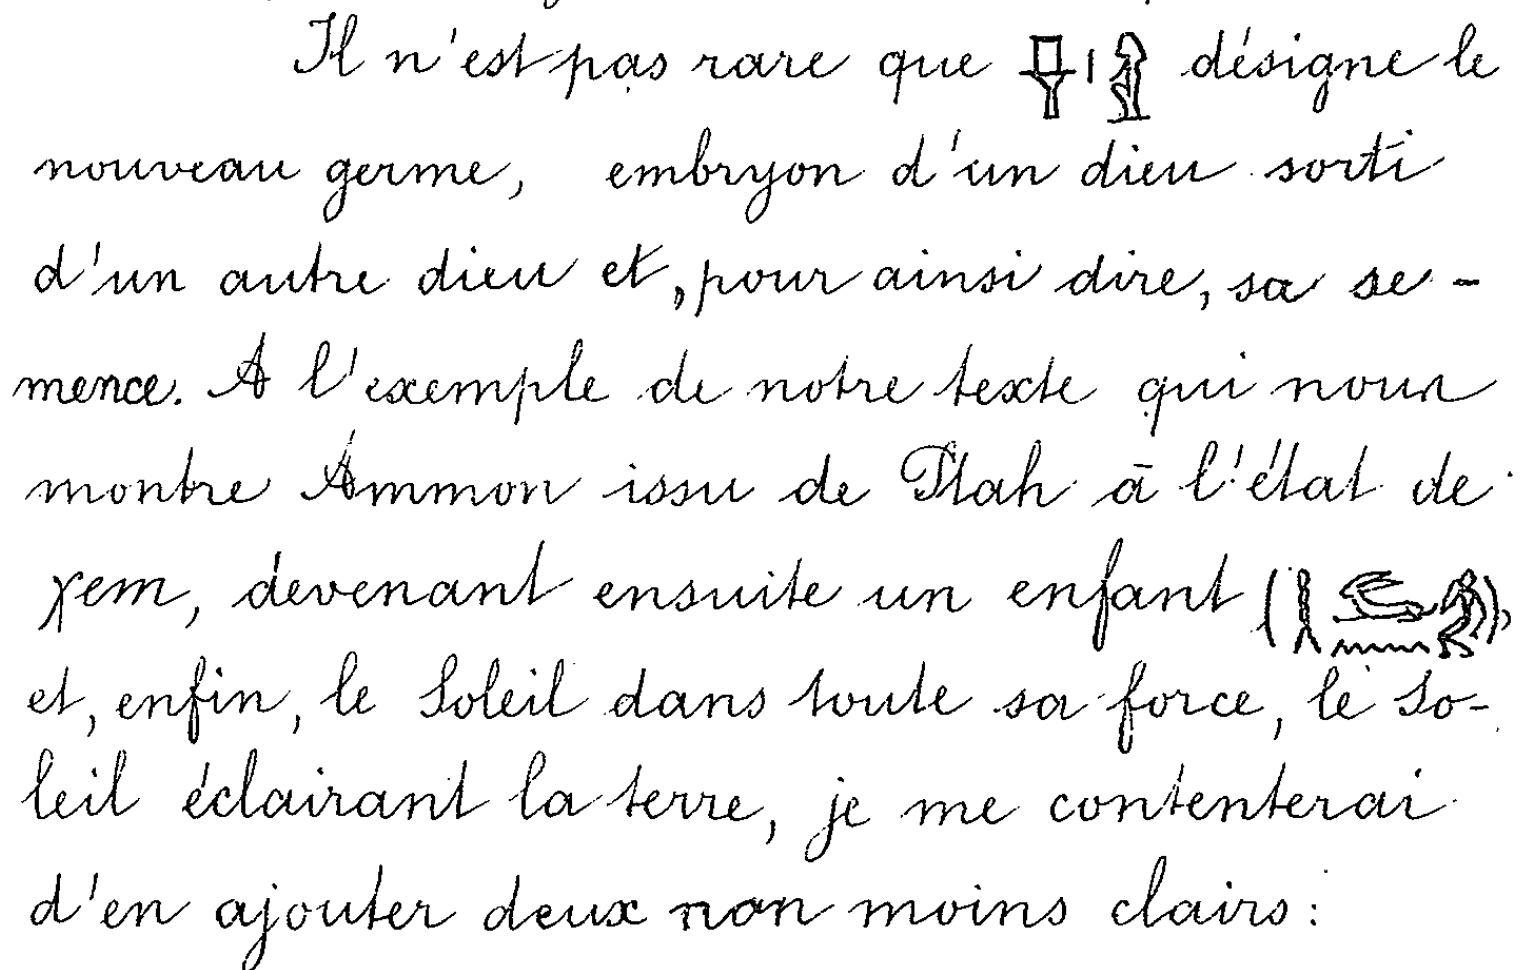 Il n'est pas rare que désigne le
nouveau germe, embryon d'un dieu sorti
d'un autre dieu et, pour ainsi dire, sa se-
mence. A l'exemple de notre texte qui nous
montre Ammon issu de Ptah à l'état de
χem, devenant ensuite un enfant ( ),
et, enfin, le Soleil dans toute sa force, le So-
leil éclairant la terre, je me contenterai
d'en ajouter deux non moins clairs :